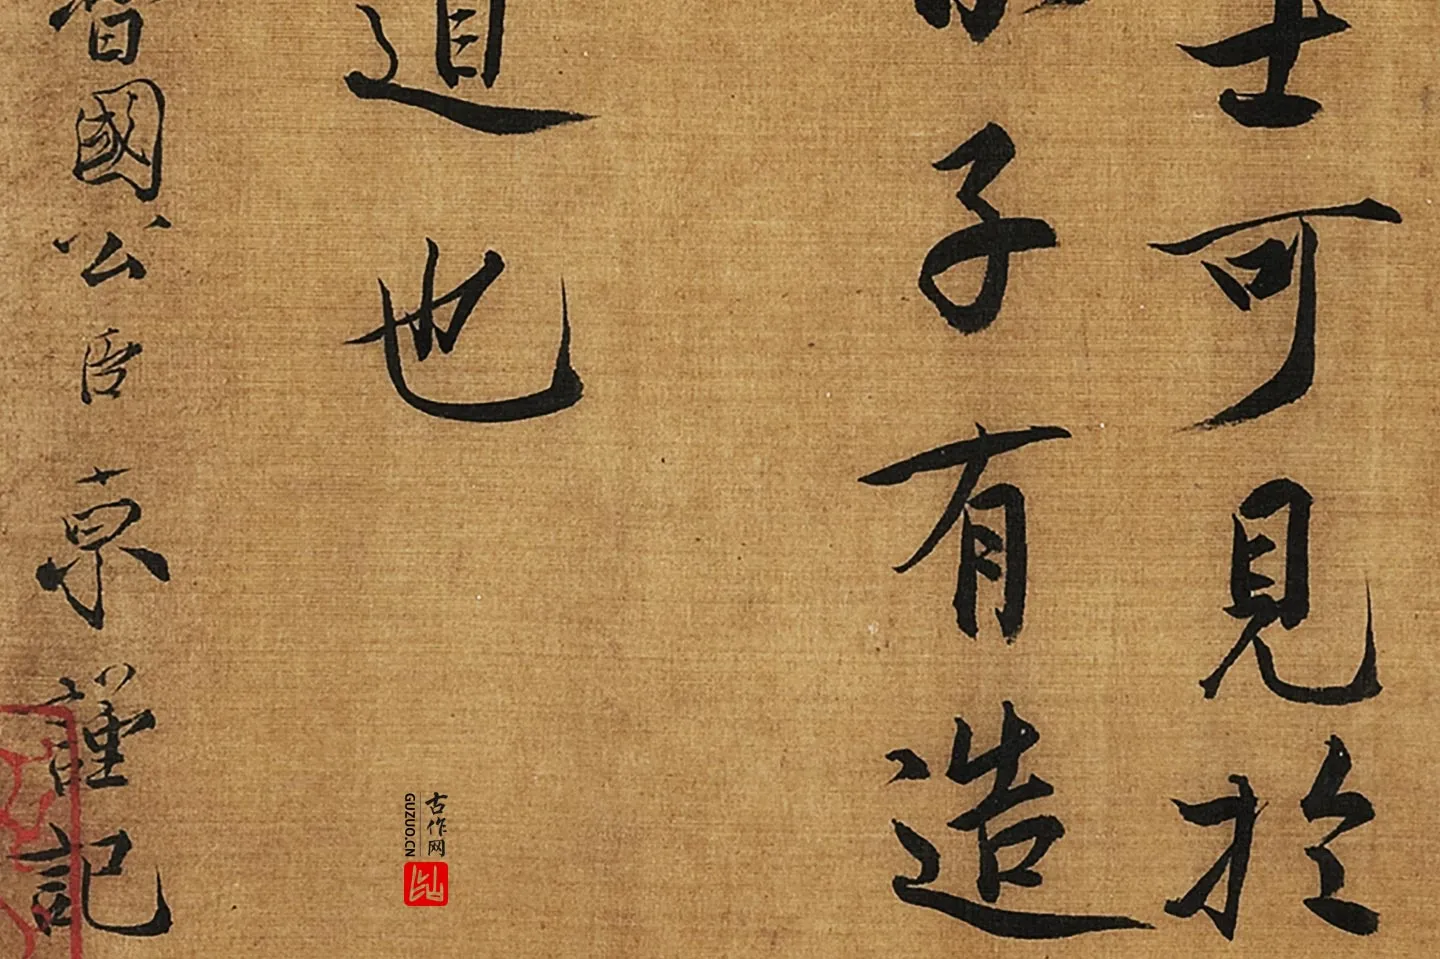 士可見於
子有造
道也
魯國公臣京謹記
古作网
GUZUO.CN